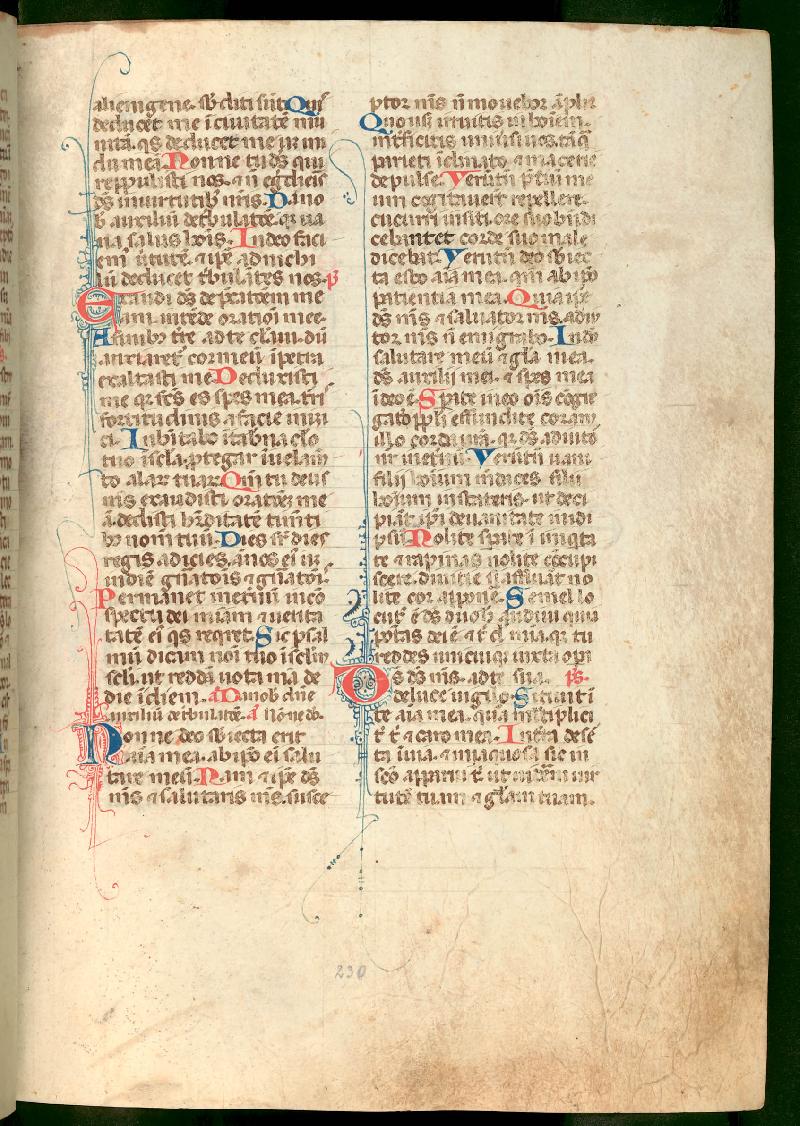 alienigene. sb̄diti sūt Quis
deducet me ī ciuitatē mu
nitā. q̄s deducet me in ydu
dumeā. Nonne tu ds̄ qui
reppulisti nos. ⁊ ñ egdieris
ds̄ in uirtutib nr̄is. Da no
b auxiliū de tbulatōe. qr ua
na salus hoīs. In deo faci
em uˀtutē. ⁊ ip̄e ad nichi
lū deducet tbulātes nos. p̄s
Exaudi ds̄ depcatōem me
am. intēde oratioī mee.
A finibꝰ tˀre ad te clāui. dū
anxiaret cor meū ī petra
exaltasti me Deduxisti
me qr fcs̄ es spes mea. tris
fortitudinis a facie inimi
ci. Inhitabo ī tabnaclo
tuo ī scla. ptegar ī uelam
to alar tuar Qm̄ tu deus
ms̄ exaudisti oratōez me
ā. dedisti hˀditatē timēti
bꝰ nom tuū. Dies sr̄ dies
regis adicies. ānos eī usqꝫ
in diē gn̄atōis ⁊ gn̄atōis.
Permanet in etnū in cō
spectu dei miām ⁊ uerita
tatē eī q̄s reqret. Sic psal
mū dicam noī tuo ī sclm
scli. ut reddā uota mā de
die ī diem. a Da nob dn̄e
auxiliū de tbulatōe. a Nōne do.
Nonne deo sb̄iecta erit
aīa mea. ab ipō eī salu
tare meū. Nam ⁊ ip̄e ds̄
ms̄ ⁊ salutaris ms̄. susce
ptor ms̄ ñ mouebor āpliꝰ
Quo usqꝫ irruitis in hoīem.
intficitis uniūsi uos. tāq̄
parieti īclinato ⁊ macerie
depulse. Verūtn̄ p̄tiū me
um cogitauert repellere.
cucurri in siti. ore suo bn̄di
cebantet corde suo male
dicebāt. Verūtn̄ deo sb̄iec
ta esto aīa mea. qm̄ ab ipō
patientia mea. Quia ip̄e
ds̄ ms̄ ⁊ saluator ms̄. adiu
tor ms̄ ñ emigrabo. In do
salutare meū ⁊ gl̄a mea.
ds̄ auxilij mei. ⁊ spes mea
ī deo ē. Spate ī eo oīs cōgre
gato ppl̄i effundite coram
illo corda ur̄a. qr ds̄ adiuto
nr̄ ī etnū. Verūtn̄ uani
filij hoīum mēdaces filij
hoīum in stateris. ut deci
piāt ip̄i de uanitate in idi
psū. Nolite spare ī iniqta
te ⁊ rapinas nolite cōcupi
scere. diuitie si affluāt no
lite cor appone. Semel lo
cutꝰ ē ds̄ duo h audiui quia
ptās dei ē ⁊ t d mīa. qr tu
reddes unicuiqꝫ iuxta opa
sua. ps̄.
Ds̄ ds̄ ms̄. ad te
de luce uigilo. Sitiuit ī
te aīa mea. quā mltiplicit
t ⁊ caro mea. In tˀra desˀ
ta ī uia. ⁊ ī naquosa sic in
scō apparui t ut uidem uir
tutē tuam ⁊ gl̄am tuam.
230